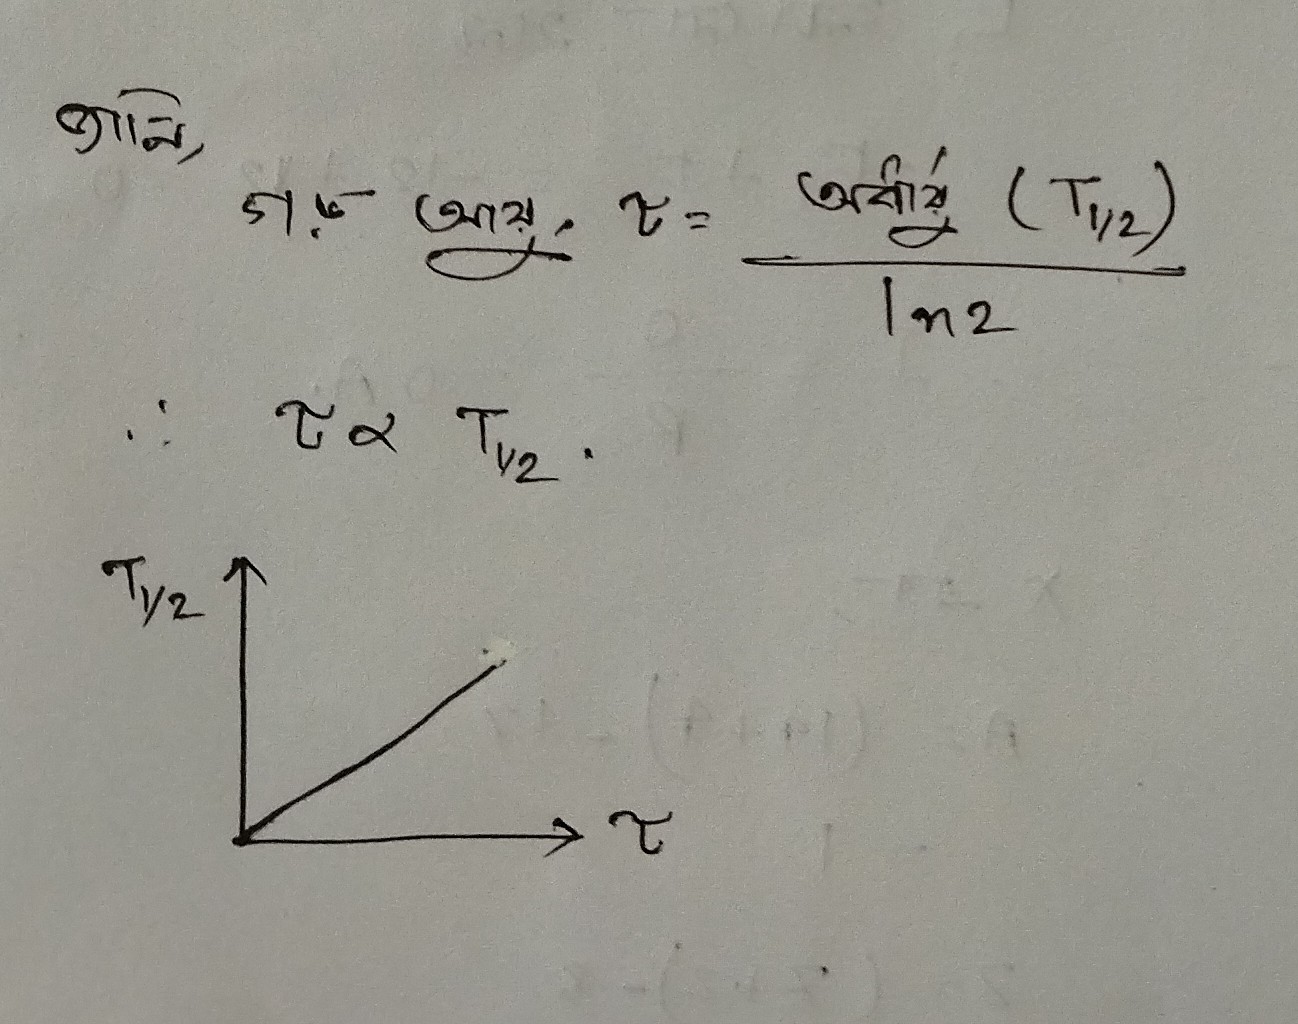 জানি,
গড় আয়ু, τ = অর্ধায়ু (T1/2) / ln2
∴ τ ∝ T1/2.
T1/2
τ